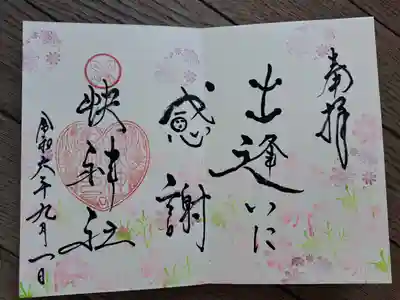 奉拝
出逢いに
感謝
映神社
令和六年九月一日